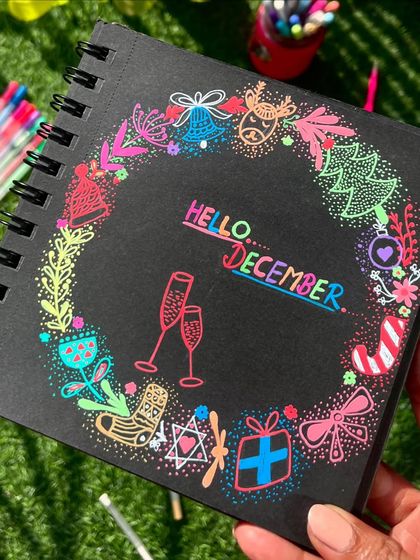 HELLO...
DECEMBER.